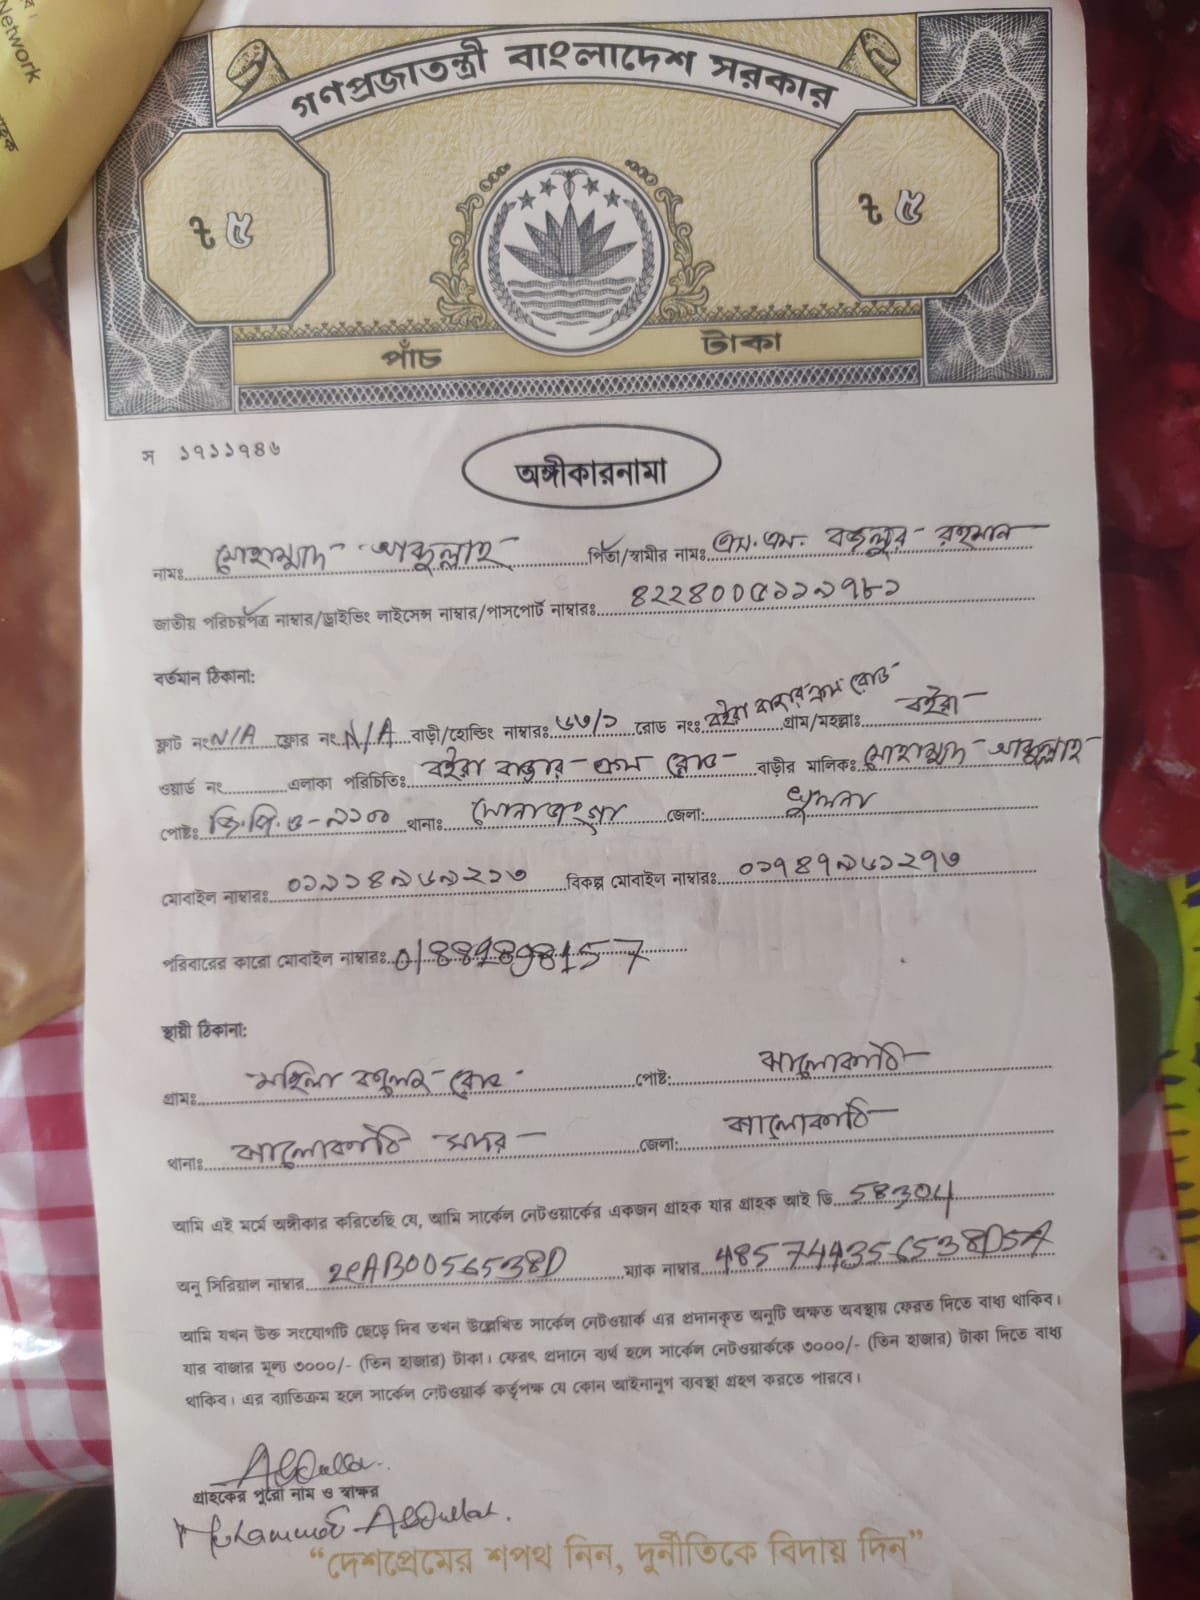 Network
গণপ্রজাতন্ত্রী বাংলাদেশ সরকার
৳ ৫ ৳ ৫
পাঁচ টাকা
স ১৭১১৭৪৬
অঙ্গীকারনামা
নামঃ মোহাম্মাদ আব্দুল্লাহ পিতা/স্বামীর নামঃ এস.এম. বজলুর রহমান
জাতীয় পরিচয়পত্র নাম্বার/ড্রাইভিং লাইসেন্স নাম্বার/পাসপোর্ট নাম্বারঃ ৪২২৪০০৫১১৯৭৮১
বর্তমান ঠিকানা:
ফ্লাট নং N/A ফ্লোর নং N/A বাড়ী/হোল্ডিং নাম্বারঃ ৬৩/১ রোড নংঃ বইরা বাজার ক্রস রোড গ্রাম/মহল্লাঃ বইরা
ওয়ার্ড নং এলাকা পরিচিতিঃ বইরা বাজার ক্রস রোড বাড়ীর মালিকঃ মোহাম্মাদ আব্দুল্লাহ
পোষ্টঃ জি.পি.ও-৯১০০ থানাঃ সোনাডাংগা জেলা: খুলনা
মোবাইল নাম্বারঃ ০১৯১৪৯৬৯২১৩ বিকল্প মোবাইল নাম্বারঃ ০১৭৪৭৯৬১২৭৩
পরিবারের কারো মোবাইল নাম্বারঃ 01889898157
স্থায়ী ঠিকানা:
গ্রামঃ মহিলা রোড পোষ্ট: ঝালোকাঠি
থানাঃ ঝালোকাঠি সদর জেলা: ঝালোকাঠি
আমি এই মর্মে অঙ্গীকার করিতেছি যে, আমি সার্কেল নেটওয়ার্কের একজন গ্রাহক যার গ্রাহক আই ডি 58304
অনু সিরিয়াল নাম্বার 2CAB0056538D ম্যাক নাম্বার 485744356538D5A
আমি যখন উক্ত সংযোগটি ছেড়ে দিব তখন উল্লেখিত সার্কেল নেটওয়ার্ক এর প্রদানকৃত অনুটি অক্ষত অবস্থায় ফেরত দিতে বাধ্য থাকিব।
যার বাজার মূল্য ৩০০০/- (তিন হাজার) টাকা। ফেরৎ প্রদানে ব্যর্থ হলে সার্কেল নেটওয়ার্ককে ৩০০০/- (তিন হাজার) টাকা দিতে বাধ্য
থাকিব। এর ব্যাতিক্রম হলে সার্কেল নেটওয়ার্ক কর্তৃপক্ষ যে কোন আইনানুগ ব্যবস্থা গ্রহণ করতে পারবে।
Abdulla
গ্রাহকের পুরো নাম ও স্বাক্ষর
Mohammod Abdullah.
“দেশপ্রেমের শপথ নিন, দুর্নীতিকে বিদায় দিন”